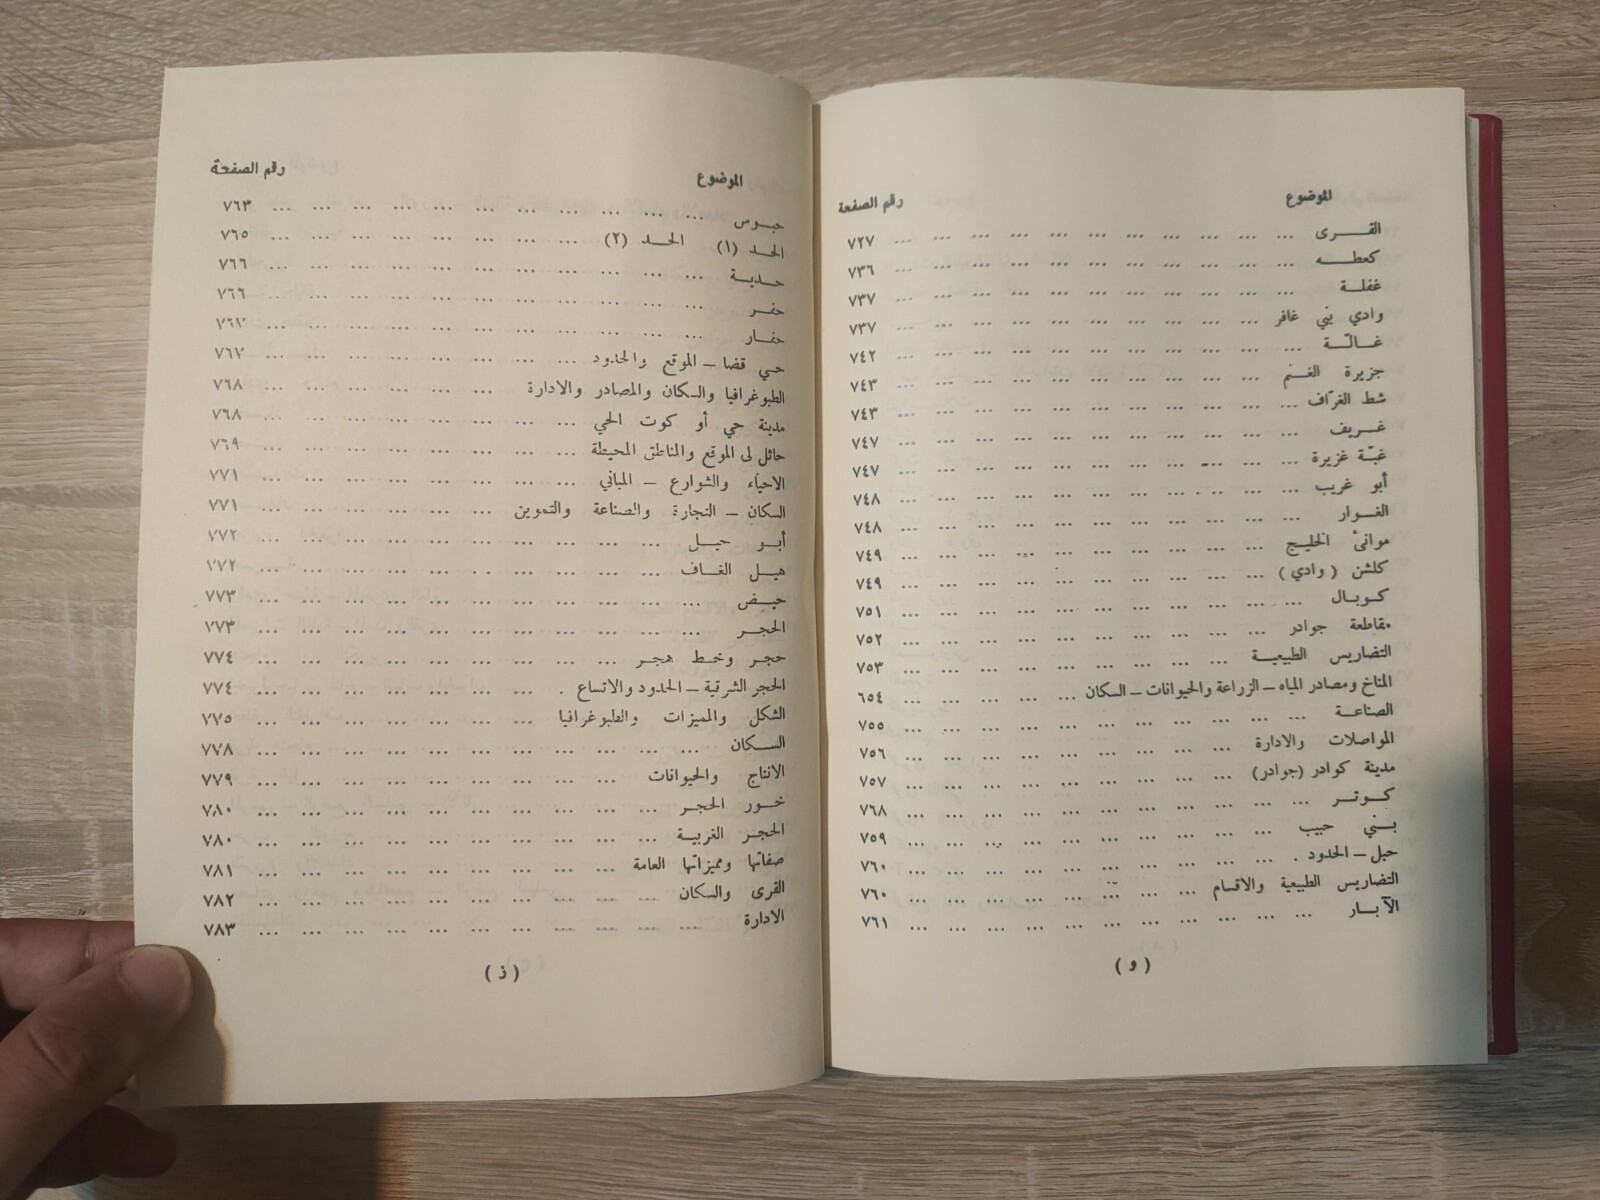 الموضوع رقم الصفحة
القرى ... ٧٢٧
كعطه ... ٧٣٦
غفلة ... ٧٣٧
وادي بني غافر ... ٧٣٧
غالّة ... ٧٤٢
جزيرة الغنم ... ٧٤٣
شط الغرّاف ... ٧٤٣
غريف ... ٧٤٧
غبّة غزيرة ... ٧٤٧
أبو غريب ... ٧٤٨
الغوار ... ٧٤٨
موانئ الخليج ... ٧٤٩
كلشن ( وادي ) ... ٧٤٩
كوبال ... ٧٥١
مقاطعة جوادر ... ٧٥٢
التضاريس الطبيعية ... ٧٥٣
المناخ ومصادر المياه – الزراعة والحيوانات – السكان ... ٦٥٤
الصناعة ... ٧٥٥
المواصلات والادارة ... ٧٥٦
مدينة كوادر (جوادر) ... ٧٥٧
كوتر ... ٧٦٨
بني حبيب ... ٧٥٩
حبل – الحدود . ... ٧٦٠
التضاريس الطبيعية والاقسام ... ٧٦٠
الآبار ... ٧٦١
( و )
الموضوع رقم الصفحة
حبوس ... ٧٦٣
الحد (١) الحد (٢) ... ٧٦٥
حدية ... ٧٦٦
حفر ... ٧٦٦
حفار ... ٧٦٧
حي قضا – الموقع والحدود ... ٧٦٧
الطبوغرافيا والسكان والمصادر والادارة ... ٧٦٨
مدينة حي أو كوت الحي ... ٧٦٨
حائل لى الموقع والمناطق المحيطة ... ٧٦٩
الاحياء والشوارع – المباني ... ٧٧١
السكان – التجارة والصناعة والتموين ... ٧٧١
أبو حيل ... ٧٧٢
هيل الغاف ... ٧٧٢
حيض ... ٧٧٣
الحجر ... ٧٧٣
حجر وخط هجر ... ٧٧٤
الحجر الشرقية – الحدود والاتساع . ... ٧٧٤
الشكل والمميزات والطبوغرافيا ... ٧٧٥
السكان ... ٧٧٨
الانتاج والحيوانات ... ٧٧٩
خور الحجر ... ٧٨٠
الحجر الغربية ... ٧٨٠
صفاتها ومميزاتها العامة ... ٧٨١
القرى والسكان ... ٧٨٢
الادارة ... ٧٨٣
( ز )